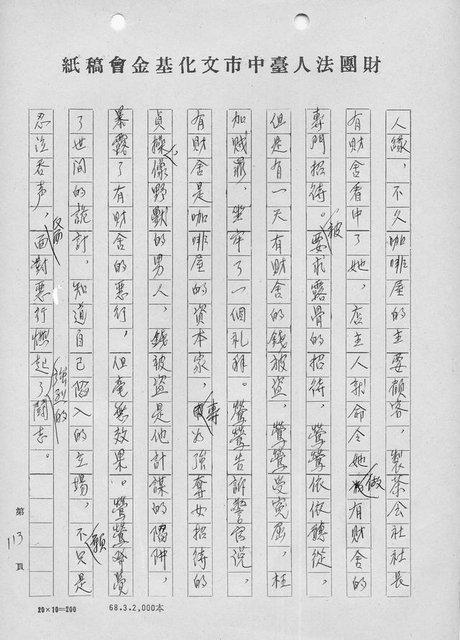 財團法人臺中市文化基金會稿紙
人緣，不久咖啡屋的主要顧客，製茶会社社長
有財舍看中了她，店主人則命令她做有財舍的
專門招待。被要求露骨的招待，鶯鶯依依聽從，
但是有一天有財舍的錢被盜，鶯鶯受冤屈，枉
加賊罪，坐牢了一個礼拜。鶯鶯告訴警官説，
有財舍是咖啡屋的資本家，專以強奪女招待的
貞操像野獸的男人，錢被盜是他計謀的陷阱，
暴露了有財舍的惡行，但毫無效果。鶯鶯發覺
了世间的詭計，知道自己陷入的立場，不願只是
忍泣吞声，面對惡行燃起了強烈的鬪志。
第113頁
20×10=200
68.3.2,000本